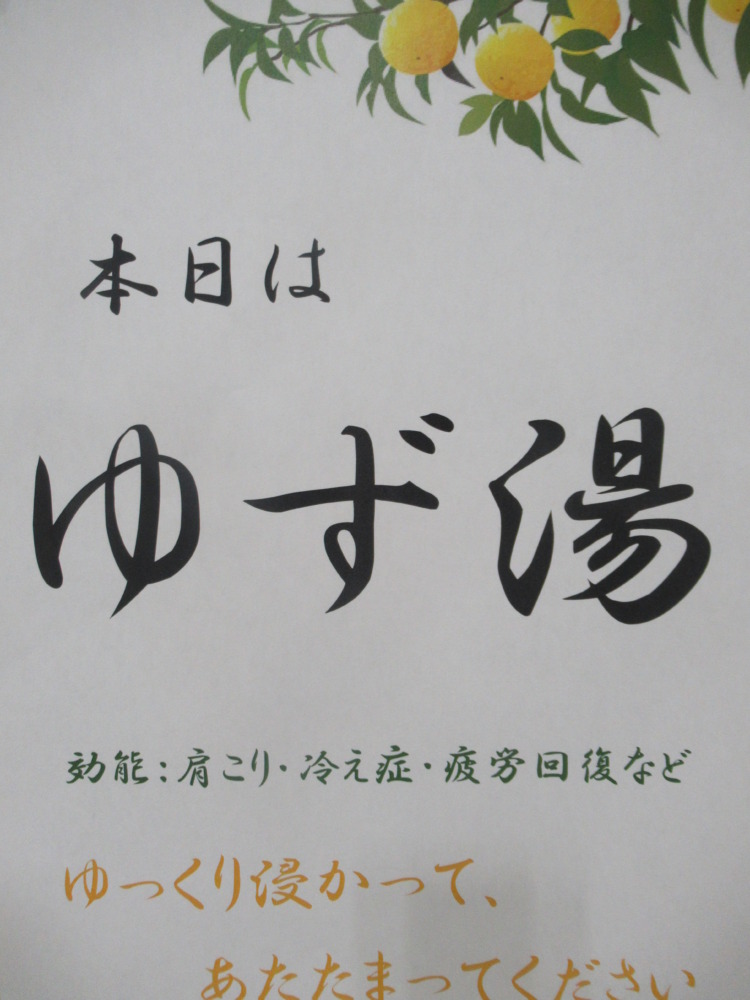 本日は
ゆず湯
効能：肩こり・冷え症・疲労回復など
ゆっくり浸かって、
あたたまってください